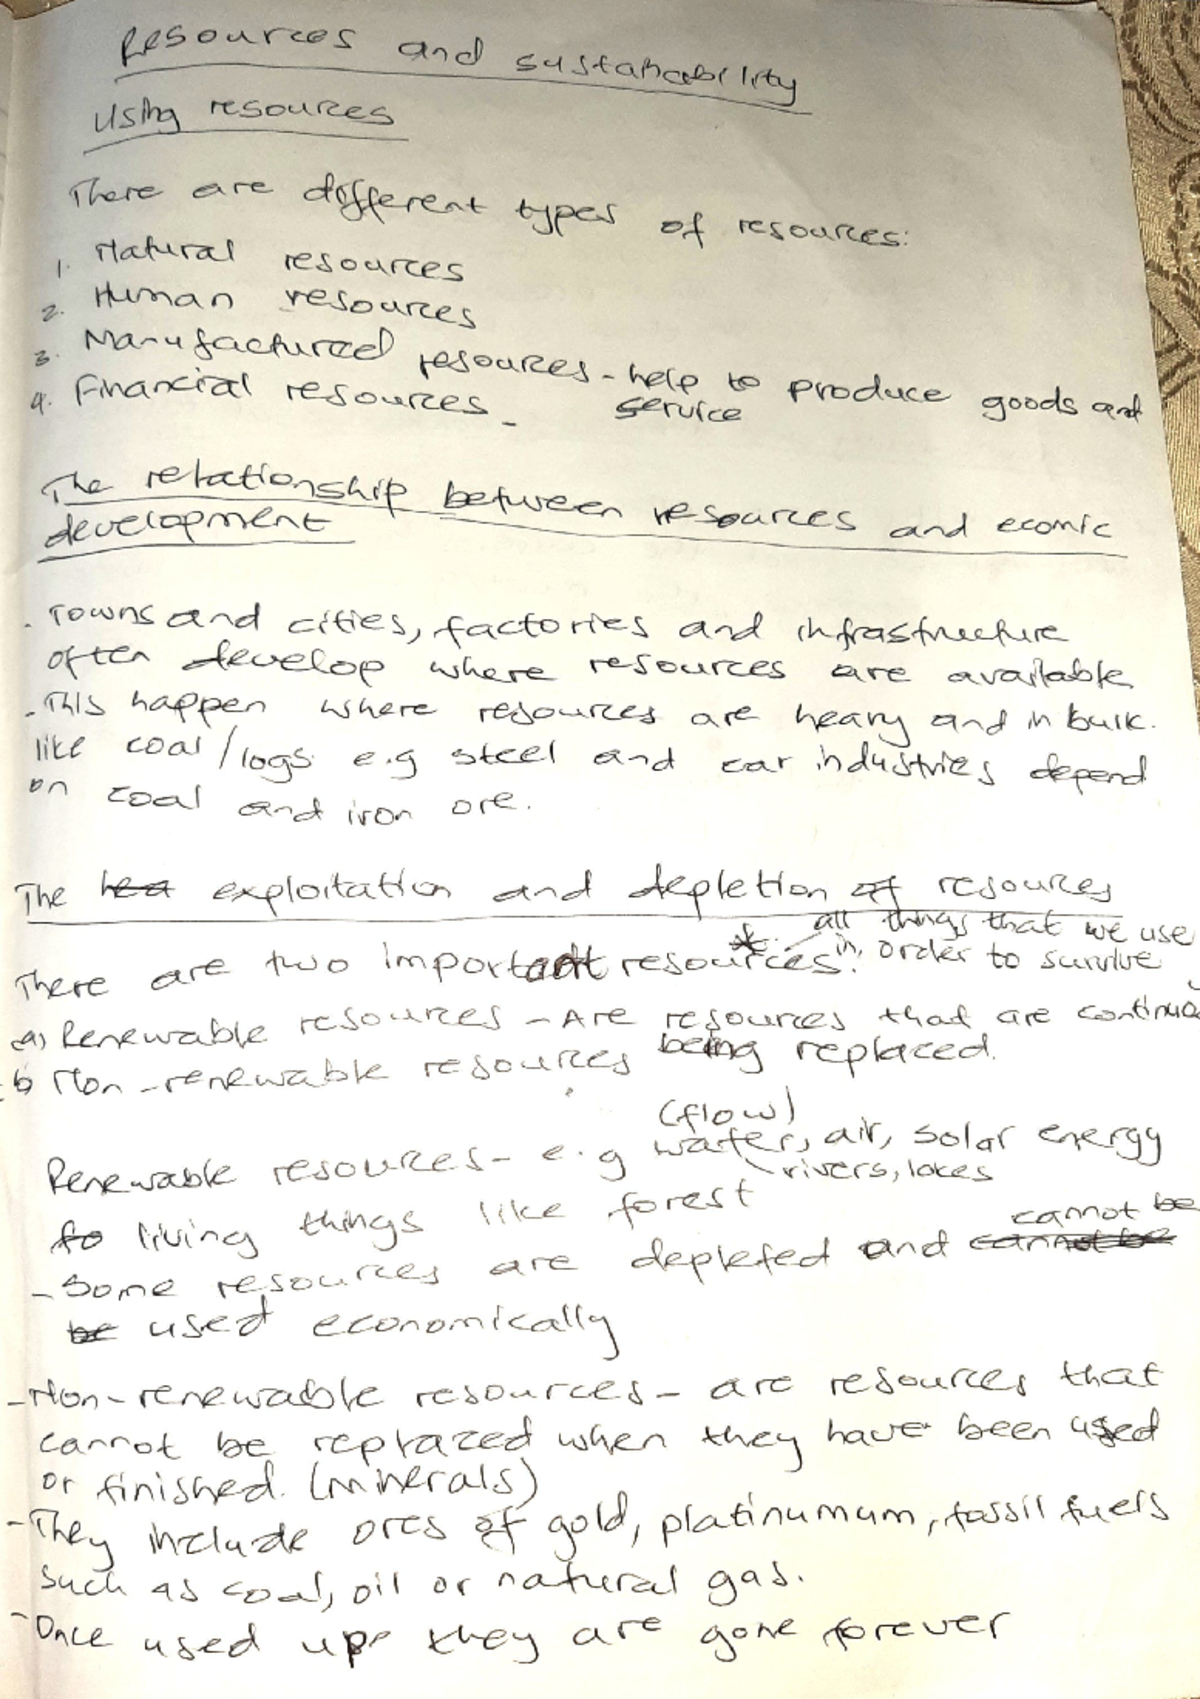 Resources and sustainability
Using resources
There are different types of resources:
1. Natural resources
2. Human resources
3. Manufactured resources - help to produce goods and
service
4. Financial resources -
The relationship between resources and econmic
development
. Towns and cities, factories and infrastructure
often develop where resources are available
- This happen where resources are heavy and in bulk.
like coal/logs e.g steel and car industries depend
on coal and iron ore.
The exploitation and depletion of resources
all things that we use
There are two important resources: in order to survive
a) Renewable resources - Are resources that are
being replaced.
b Non-renewable resources
(flow)
Renewable resources - e.g water, air, solar energy
rivers, lakes
to living things like forest
- Some resources are depleted and cannot be
used economically
- Non-renewable resources - are resources that
cannot be replaced when they have been used
or finished. (minerals)
- They include ores of gold, platinumum, fossil fuels
such as coal, oil or natural gas.
- Once used up they are gone forever